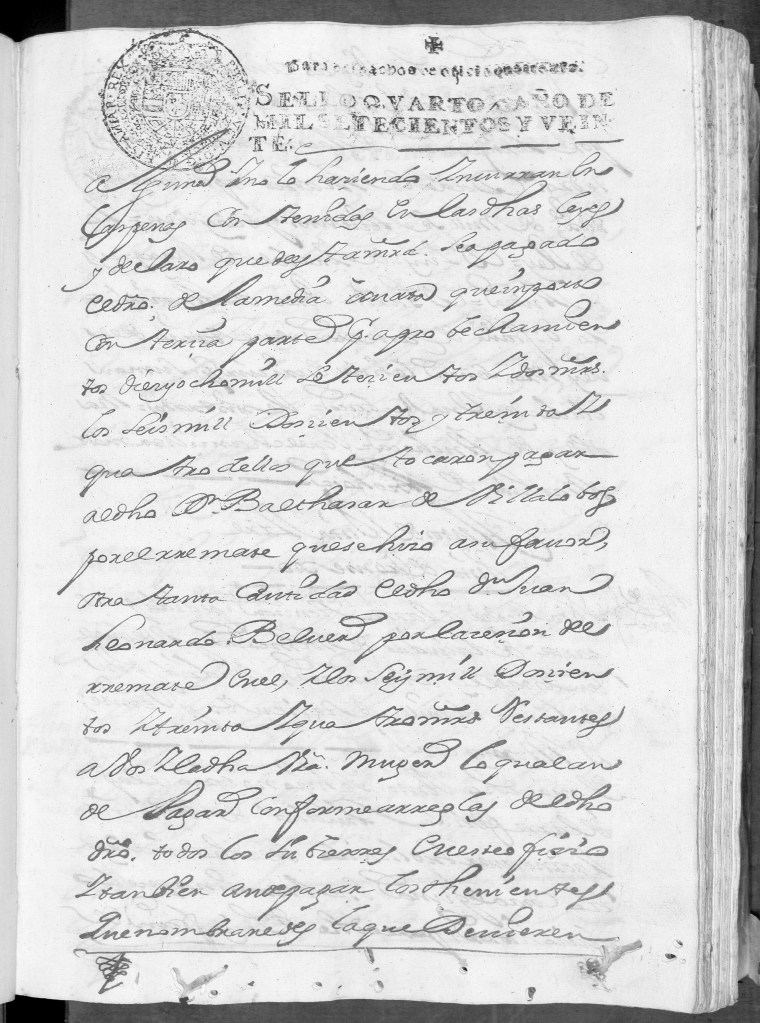 ✠
Para despachos de oficio quatro mrs.
SELLO QVARTO, AÑO DE
MIL SETECIENTOS Y VEIN-
TE.
a Yno lo haziendo Yncurran En
las penas Contenidas En las dhas leyes
y declaro que deesta mrd. sea pagado
el dro. de la media anata que inporto
Con terzia parte de aprobechamien
tos diezyocho mill setezientos Y dos mrs.
los seis mill Dozientos y treinta Y
quatro dellos que tocaron pagar
aldho Dn Balthasar de Villalobos
por el rremate que se hizo a su favor,
otra tanta Cantidad el dho dn Juan
Leonardo Belver por la zesion del
rremate en el, Y los seys mill Dozien
tos Y treinta Y quatro mrs Restantes
a Vos Y la dha Vra. Muger lo qual an
de Pagar Conforme a rreglas del dho
dro. todos los subzesores en este ofizio
Y tanbien an de pagar los thenientes
que nombraredes lo que Devieren